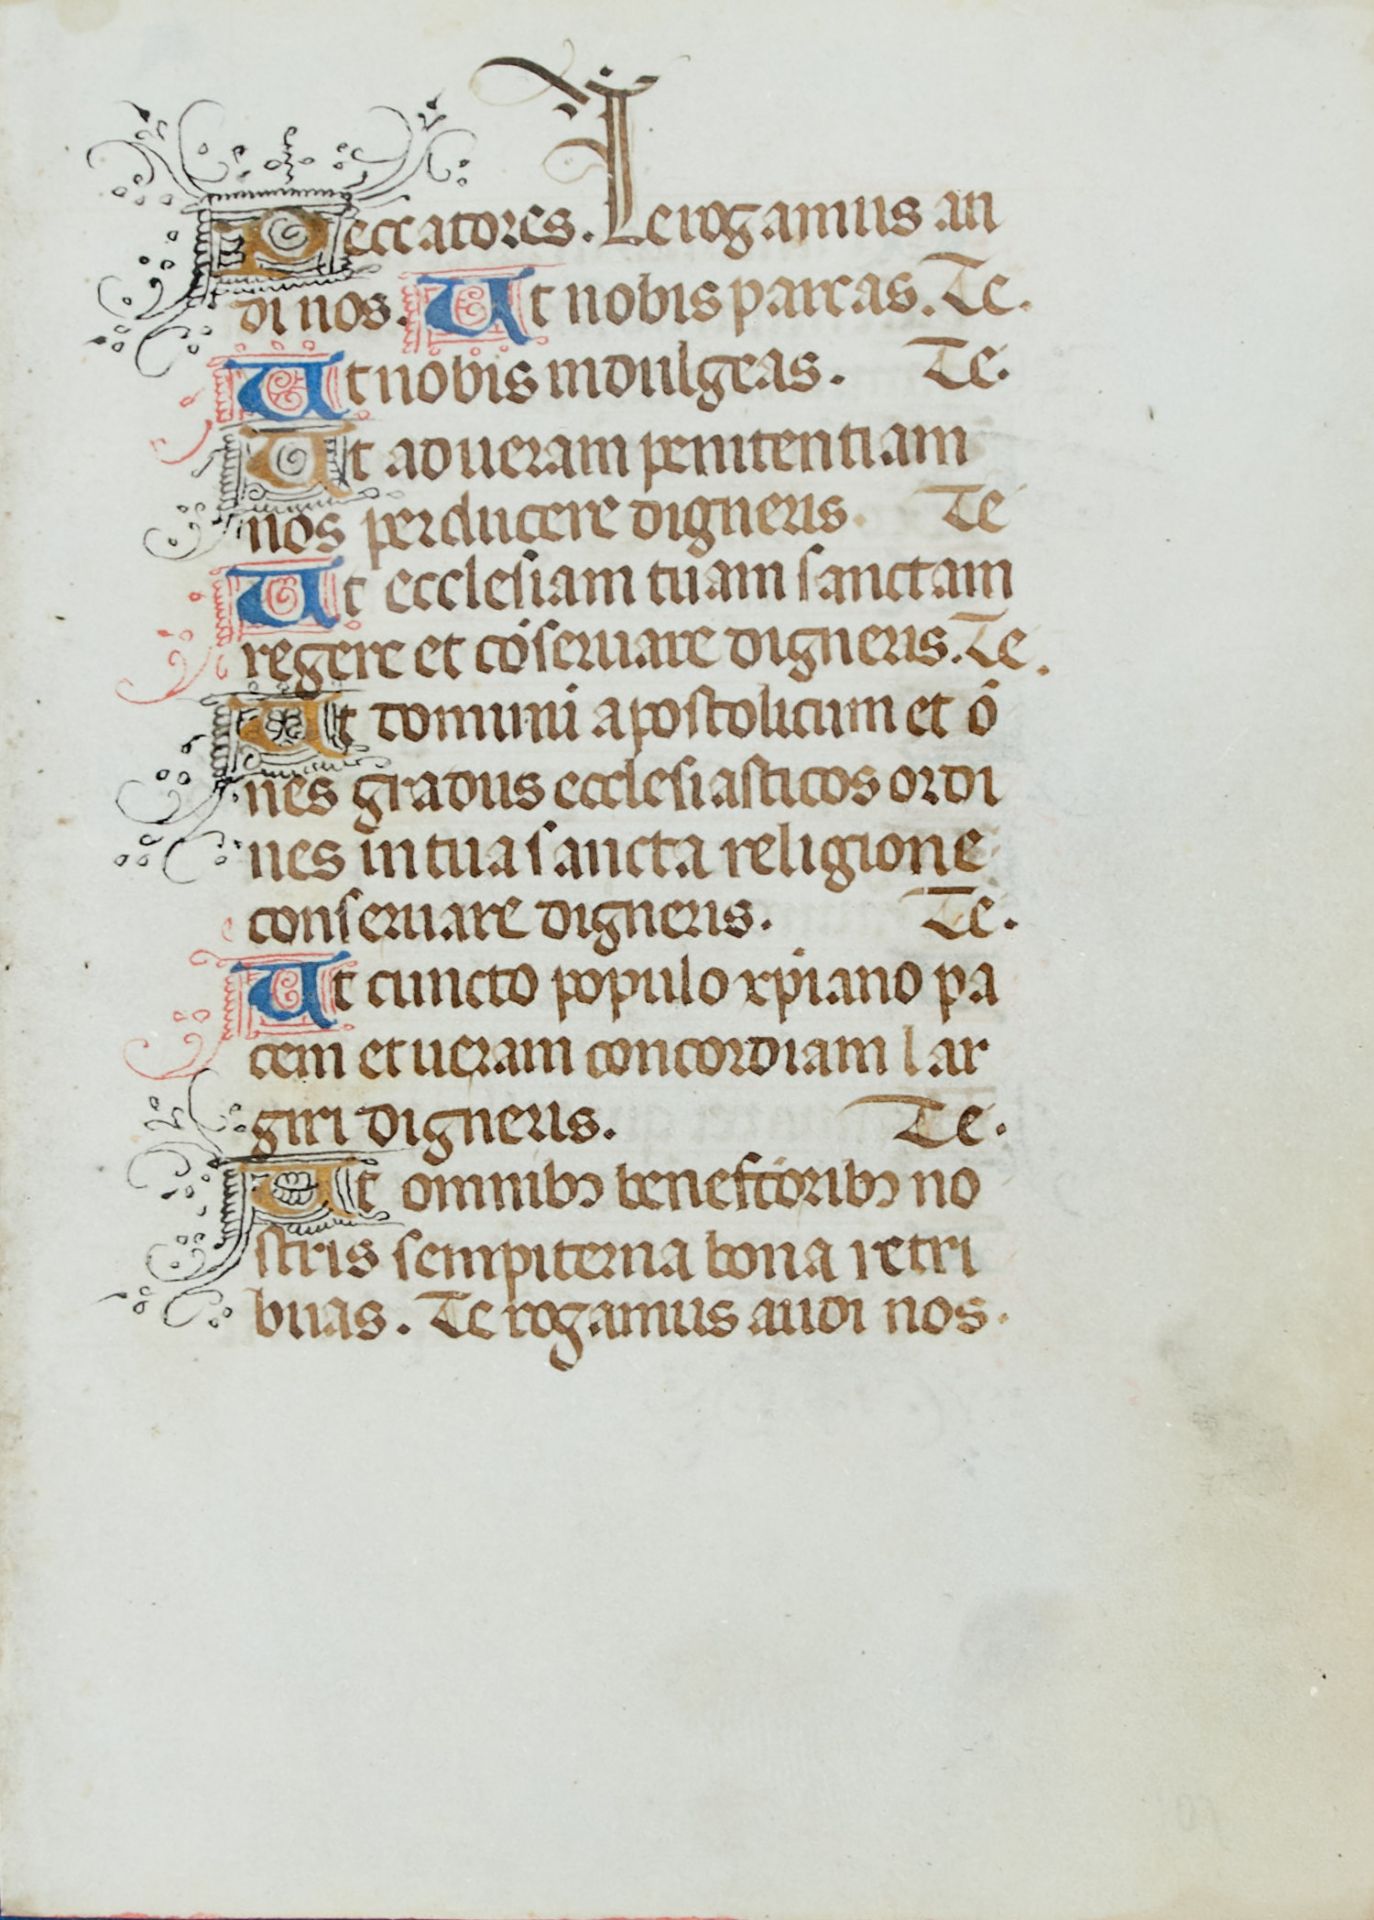 Peccatores. Te rogamus au
di nos. Ut nobis parcas. Te.
Ut nobis indulgeas. Te.
Ut ad ueram penitentiam
nos perducere digneris. Te
Ut ecclesiam tuam sanctam
regere et cōseruare digneris. Te.
Ut domnū apostolicum et ō
nes gradus ecclesiasticos ordi
nes in tua sancta religione
conseruare digneris. Te.
Ut cuncto populo xp̄iano pa
cem et ueram concordiam lar
giri digneris. Te.
Ut omnibꝫ benefc̄oribꝫ no
stris sempiterna bona retri
buas. Te rogamus audi nos.